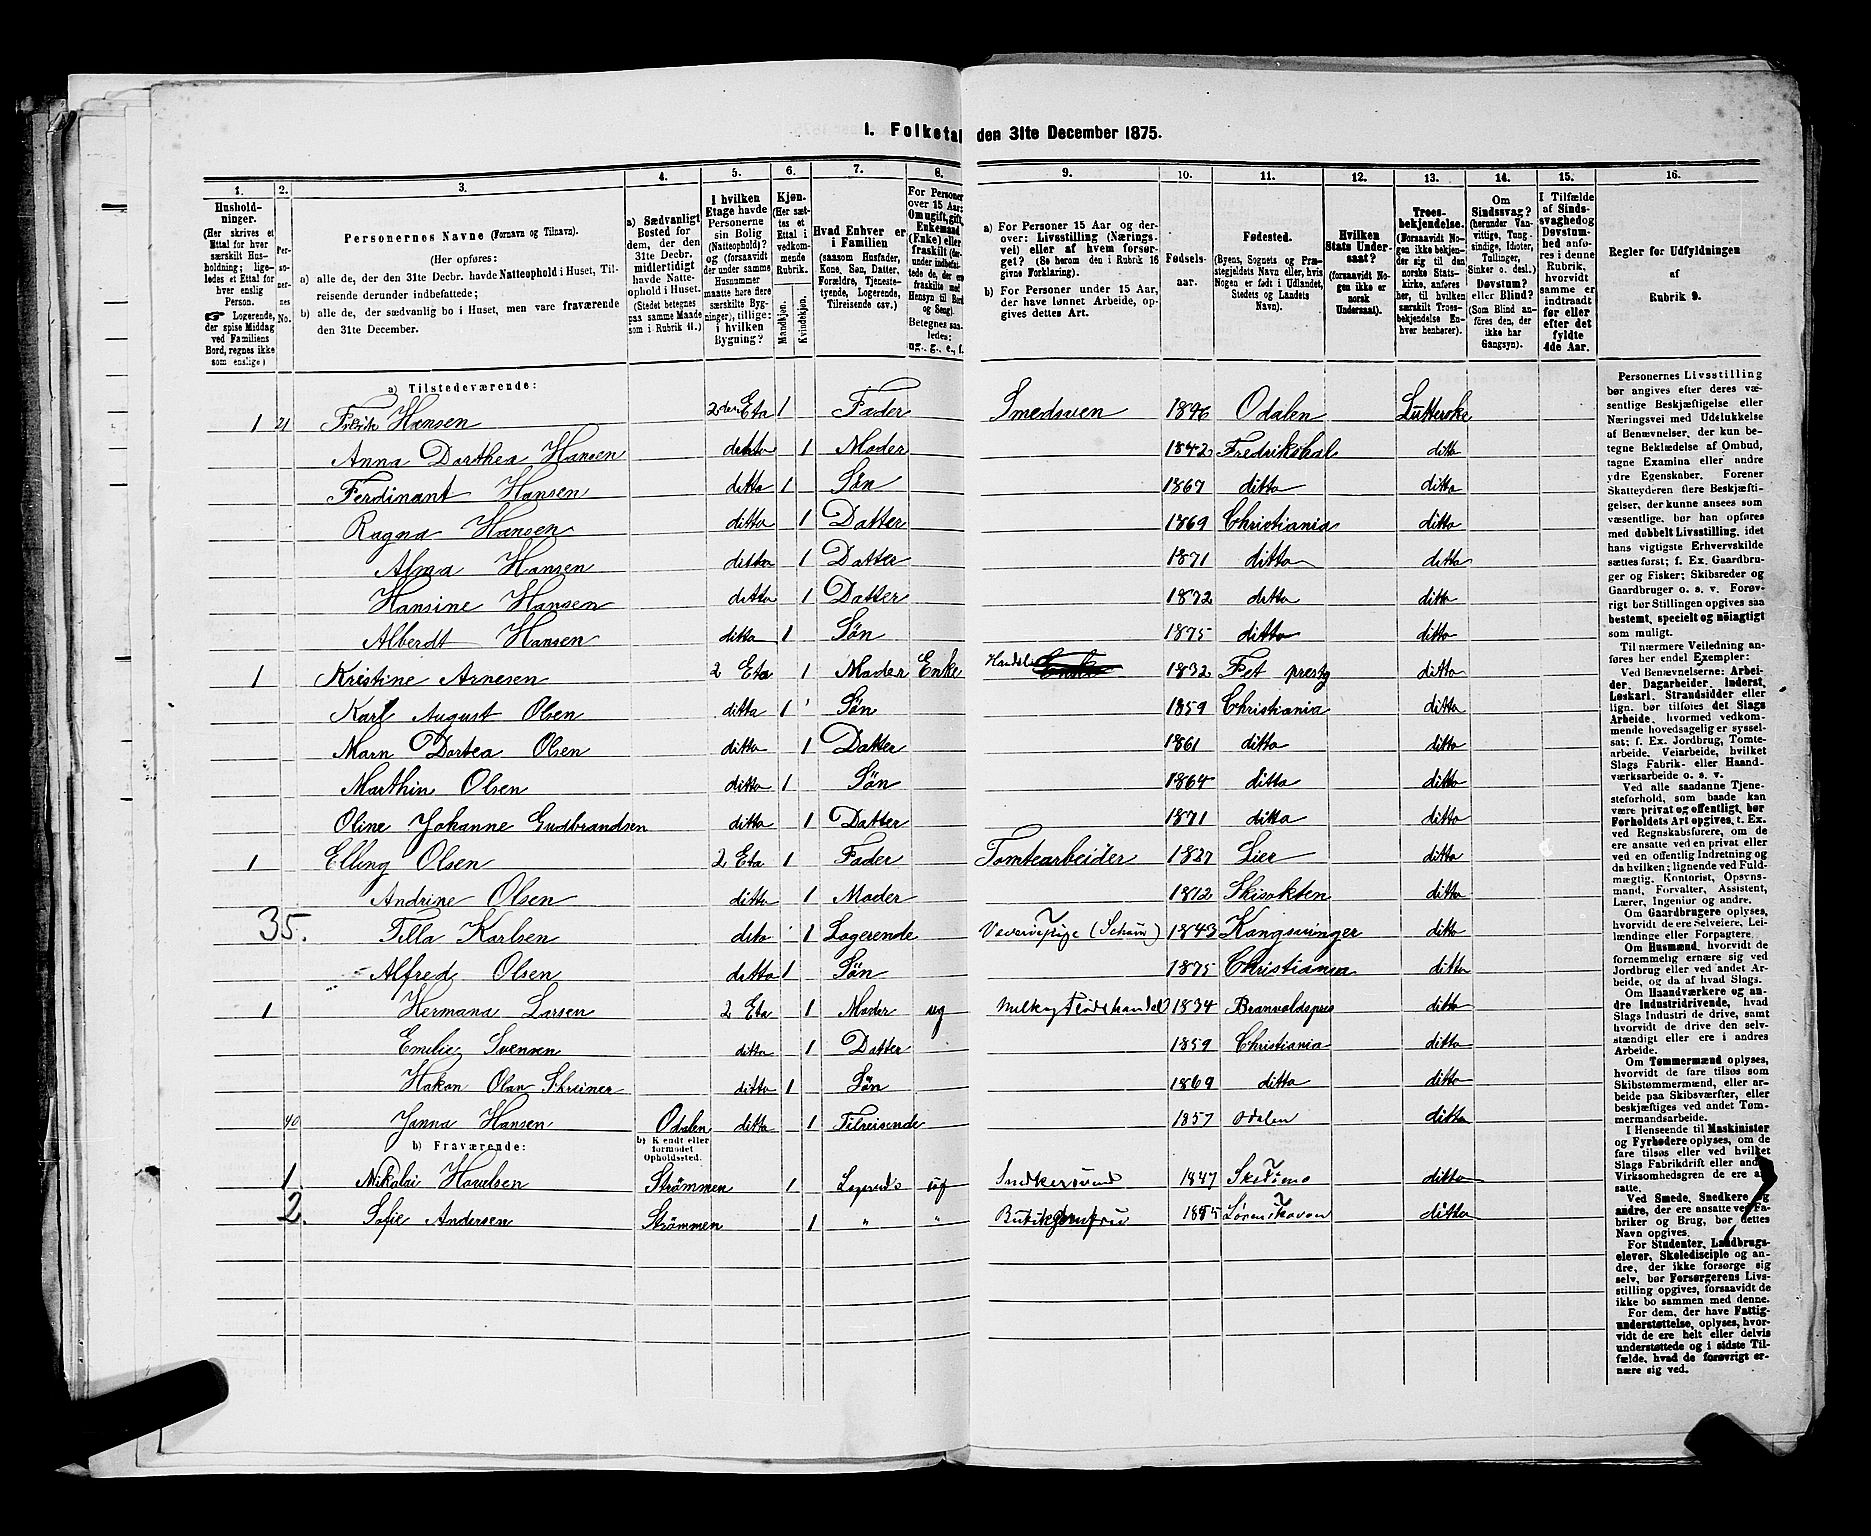 I. Folketal den 31te December 1875.
1. 2. 3. 4. 5. 6. 7. 8. 9. 10. 11. 12. 13. 14. 15. 16.
Hushold-
ninger.
(Her skrives et
Ettal for hver
særskilt Hus-
holdning; lige-
ledes et Ettal for
hver enslig
Person.
☞ Logerende,
der spise Middag
ved Familiens
Bord, regnes ikke
som enslige.)
Per-
so-
ner-
nes
No.
Personernes Navne (Fornavn og Tilnavn).
(Her opføres:
a) alle de, der den 31te Decbr. havde Natteophold i Huset, Til-
reisende derunder indbefattede;
b) alle de, der sædvanlig bo i Huset, men vare fraværende
den 31te December.
a) Sædvanligt
Bosted for
dem, der den
31te Decbr.
midlertidigt
havde Natte-
ophold i Huset.
(Stedet betegnes
paa samme Maade
som i Rubrik 11.)
I hvilken
Etage havde
Personerne
sin Bolig
(Natteophold)?
og (forsaavidt
der under samme
Husnummer
maatte høre flere
særskilte Byg-
ninger), tillige:
i hvilken
Bygning?
Kjøn.
(Her sæt-
tes et
Ettal i
vedkom-
mende
Rubrik.
Mandkjøn.
Kvindekjøn.
Hvad Enhver er
i Familien
(saasom Husfader,
Kone, Søn, Datter,
Forældre, Tjeneste-
tyende, Logerende,
Tilreisende osv.)
For Personer
over 15 Aar:
Om ugift, gift,
Enkemand
(Enke) eller
fraskilt (der-
under indbefat-
tede de, der ere
fraskilte med
Hensyn til Bord
og Seng).
Betegnes saa-
ledes:
ug., g., e., f.
a) For Personer 15 Aar og der-
over: Livsstilling (Nærings-
vei) eller af hvem forsør-
get? (Se herom den i Rubrik 16
givne Forklaring).
b) For Personer under 15 Aar,
der have lønnet Arbeide, op-
gives dettes Art.
Fødsels-
aar.
Fødested.
(Byens, Sognets og Præ-
stegjeldets Navn eller, hvis
Nogen er født i Udlandet,
Stedets og Landets
Navn).
Hvilken
Stats Under-
saat?
(forsaavidt No-
gen ikke er
norsk
Undersaat).
Troes-
bekjendelse.
(Forsaavidt No-
gen ikke bekjen-
der sig til den
norske Stats-
kirke, anføres
her, til hvilken
særskilt Troes-
bekjendelse En-
hver henhører).
Om
Sindssvag?
(herunder Van-
vittige, Tung-
sindige, Idioter,
Tullinger,
Sinker o. desl.)
Døvstum?
eller Blind?
(Som Blind an-
føres den, der
ikke har
Gangsyn).
I Tilfælde
af Sinds-
svaghed og
Døvstum-
hed anfø-
res i denne
Rubrik,
hvorvidt
samme er
indtraadt
før eller
efter det
fyldte
4de Aar.
Regler for Udfyldningen
af
Rubrik 9.
a) Tilstedeværende:
1 21 Hansen 2den Eta 1 Fader Smedsven Odalen Lutterske
Anna Dorthea Hansen ditto 1 Moder 1842 Fredrikshal ditto
Ferdinant Hansen ditto 1 Søn 1867 ditto ditto
Ragna Hansen ditto 1 Datter 1869 Christiania ditto
Alma Hansen ditto 1 Datter 1871 ditto ditto
Hansine Hansen ditto 1 Datter 1872 ditto ditto
Alberdt Hansen ditto 1 Søn 1875 ditto ditto
1 Kristine Arnesen 2 Eta 1 Moder Enke 1832 Fet prestg ditto
Karl August Olsen ditto 1 Søn 1859 Christiania ditto
Marn Dortea Olsen ditto 1 Datter 1861 ditto ditto
Marthin Olsen ditto 1 Søn 1864 ditto ditto
Oline Johanne Gudbrandsen ditto 1 Datter 1871 ditto ditto
1 Elling Olsen 2 Eta 1 Fader Tomtearbeider 1827 Lier ditto
Andrine Olsen ditto 1 Moder 1812 ditto
35. Tilla Karlsen dito 1 Logerende 1843 Kongsvinger ditto
Alfred Olsen ditto 1 Søn 1875 Christiania ditto
1 Hermana Larsen 2 Eta 1 Moder ug 1834 ditto
Emilie Svensen ditto 1 Datter 1859 Christiania ditto
Hakon Olan Schreiner ditto 1 Søn 1869 ditto ditto
40 Janna Hansen Odalen ditto 1 Tilreisende 1857 Odalen ditto
b) Fraværende:
b) Kjendt eller
formodet
Opholdssted.
1. Nikolai Strömmen 1 ug 1847 ditto
2. Sofie Andersen Strömmen 1 " " 1855 ditto
Personernes Livsstilling
bør angives efter deres væ-
sentlige Beskjæftigelse eller
Næringsvei med Udelukkelse
af Benævnelser, der kun be-
tegne Beklædelse af Ombud,
tagne Examina eller andre
ydre Egenskaber. Forener
Skatteyderen flere Beskjæfti-
gelser, der kunne ansees som
væsentlige, bør han opføres
med dobbelt Livsstilling, idet
hans vigtigste Erhvervskilde
sættes først; f. Ex. Gaardbru-
ger og Fisker; Skibsreder og
Gaardbruger o. s. v. Forøv-
rigt bør Stillingen opgives saa
bestemt, specielt og nøiagtigt
som muligt.
Til nærmere Veiledning an-
føres her endel Exempler:
Ved Benævnelserne: Arbei-
der, Dagarbeider, Inderst,
Løskarl, Strandsidder eller
lign. bør tilføies det Slags
Arbeide, hvormed vedkom-
mende hovedsagelig er syssel-
sat; f. Ex. Jordbrug, Tomte-
arbeide, Veiarbeide, hvilket
Slags Fabrik- eller Haand-
værksarbeide o. s. v.
Ved alle saadanne Tjene-
steforhold, som baade kan
være privat og offentligt, bør
Forholdets Art opgives, t. Ex.
ved Regnskabsførere, om de
ere ansatte ved en privat eller
ved en offentlig Indretning og
da hvilken; lignende ved Fuld-
mægtig, Kontorist, Opsyns-
mand, Forvalter, Assistent,
Lærer, Ingeniør og andre.
Om Gaardbrugere oplyses,
hvorvidt de ere Selveiere, Lei-
lændinge eller Forpagtere.
Om Husmænd, hvorvidt de
fornemmelig ernære sig ved
Jordbrug eller ved andet Ar-
beide, og da af hvad Slags.
Om Haandværkere og an-
dre Industridrivende, hvad
Slags Industri de drive, samt
hvorvidt de drive den selv-
stændigt eller ere i andres
Arbeide.
Om Tømmermænd oplyses,
hvorvidt de fare tilsøs som
Skibstømmermænd, eller ar-
beide paa Skibsværfter, eller
beskjæftiges ved andet Tøm-
mermandsarbeide.
I Henseende til Maskinister
og Fyrbødere oplyses, om de
fare tilsøs eller ved hvilket
Slags Fabrikdrift eller anden
Virksomhedsgren de ere an-
satte.
Ved Smede, Snedkere og
andre, der ere ansatte ved Fa-
briker og Brug, bør dettes
Navn opgives.
For Studenter, Landbrugs-
elever, Skoledisciple og an-
dre, der ikke forsørge sig
selv, bør Forsørgerens Livs-
stilling opgives, forsaavidt de
ikke bo sammen med denne.
For dem, der have Fattig-
understøttelse, oplyses, hvor-
vidt de ere helt eller delvis
understøttede og i sidste Til-
fælde, hvad de forøvrigt er-
nære sig ved.